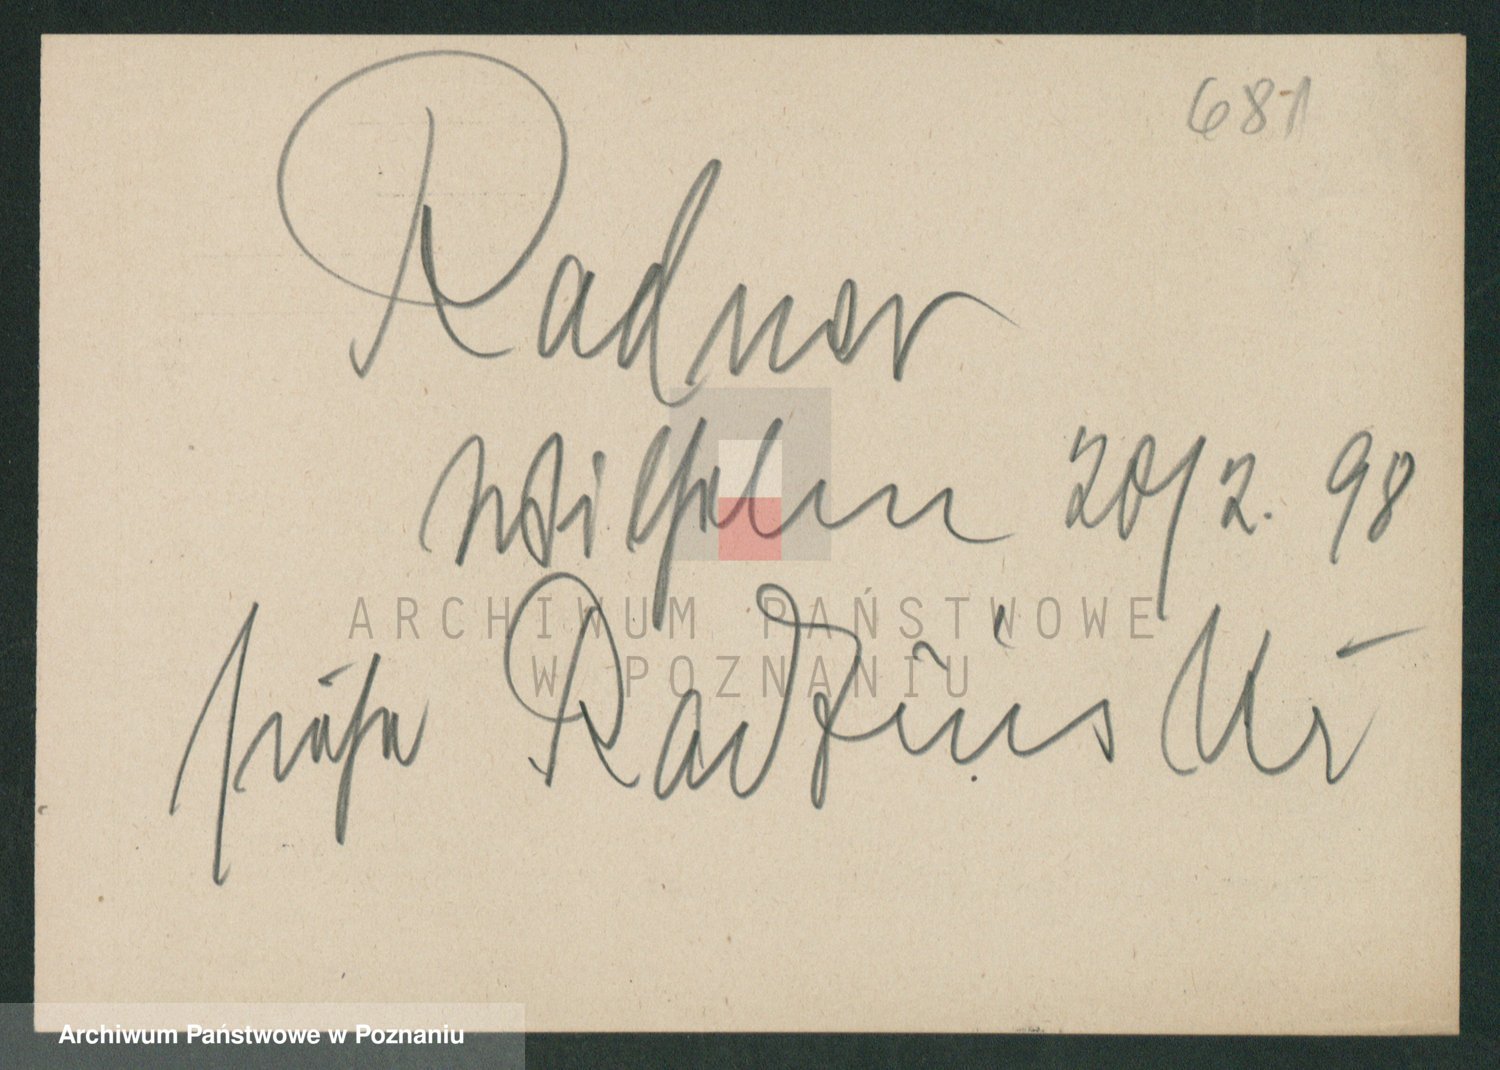 681
Radner
Wilhelm 20/2. 98
ARCHIWUM PAŃSTWOWE
W POZNANIU
Archiwum Państwowe w Poznaniu